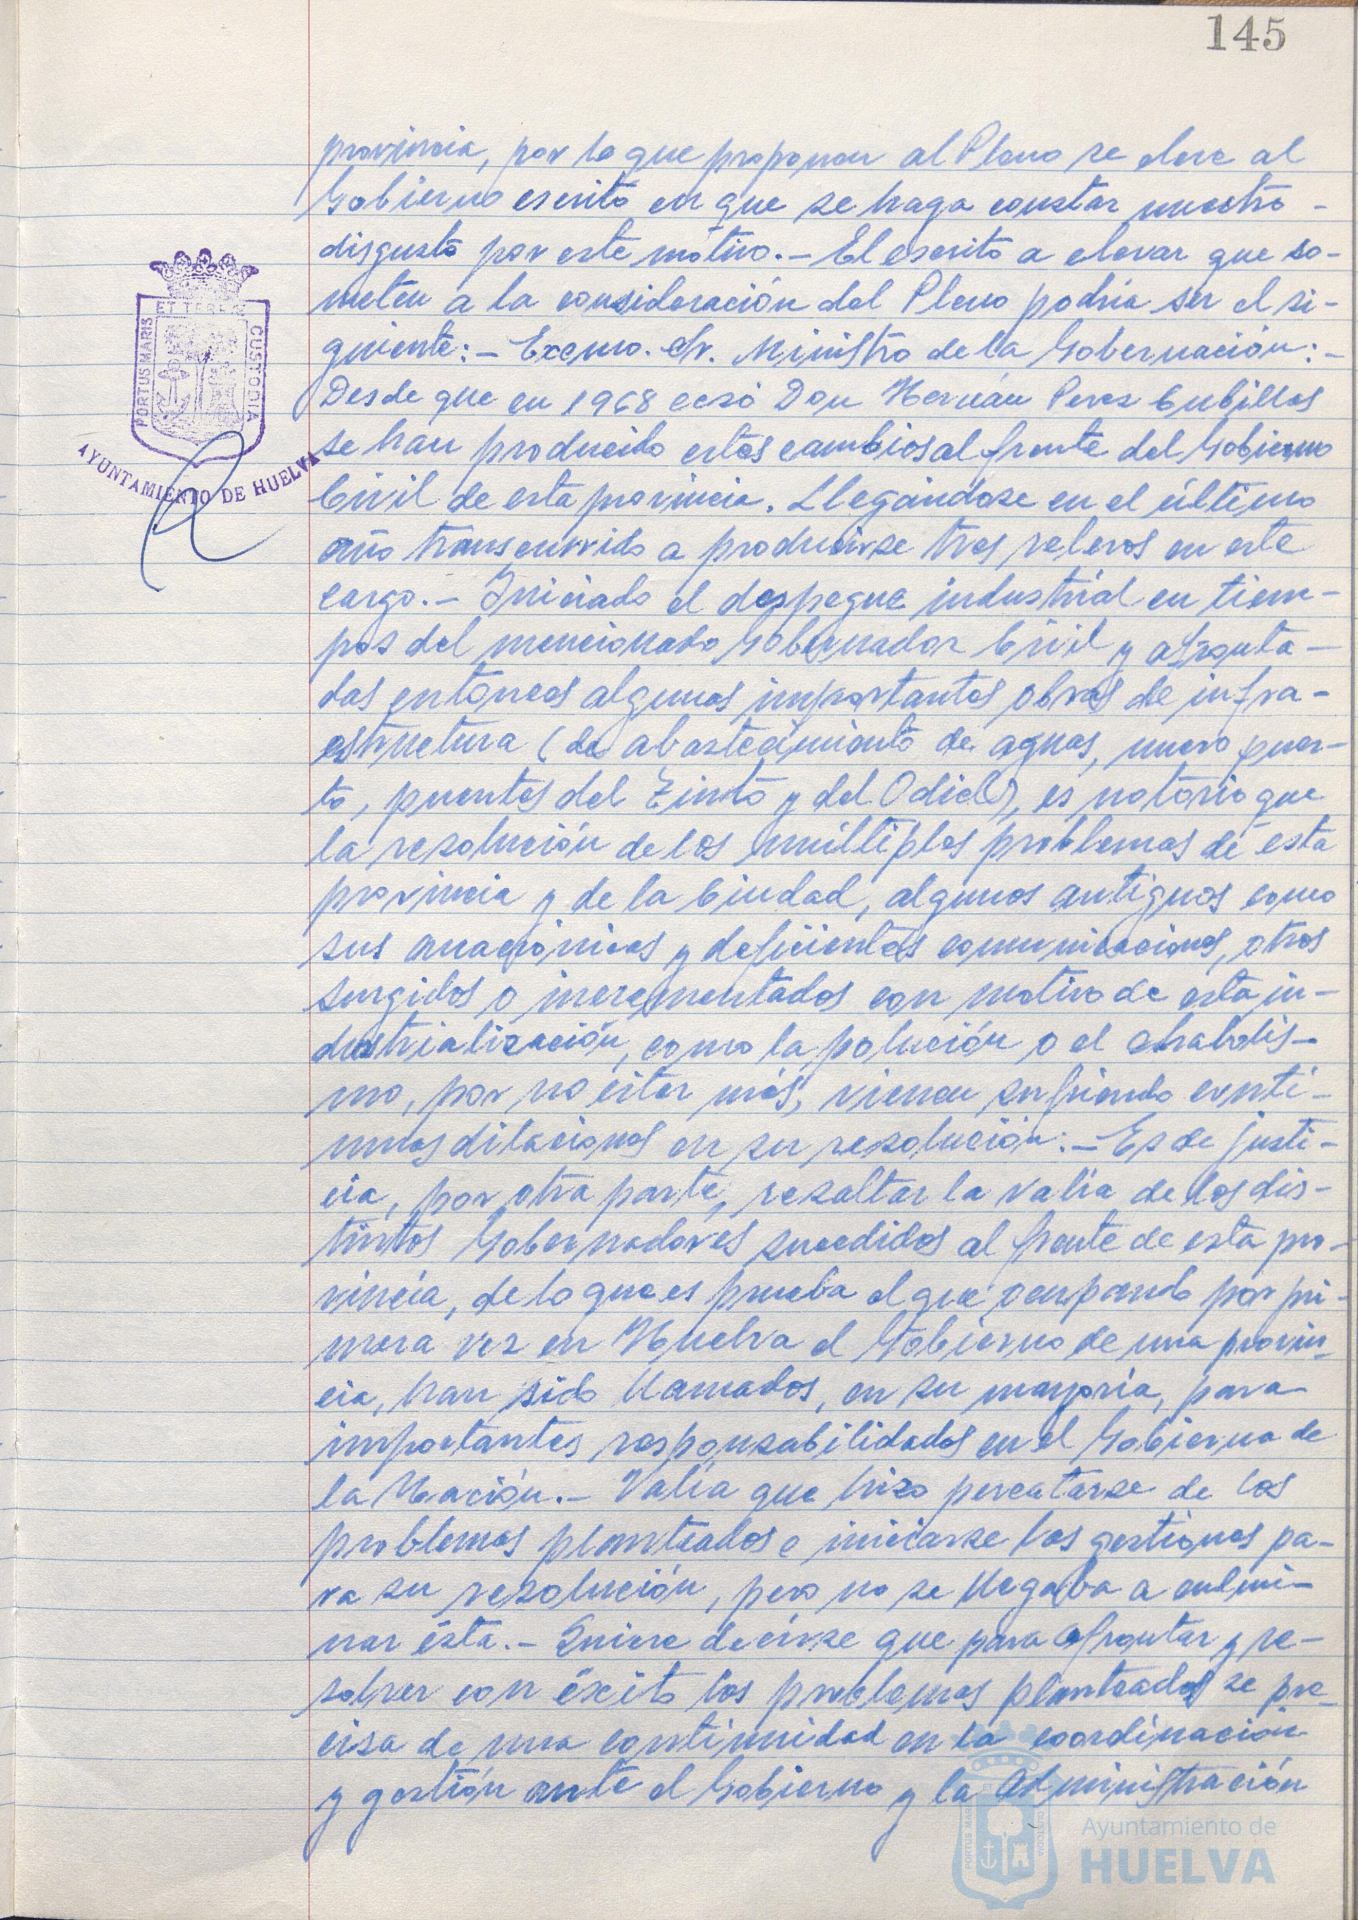 145
provincia, por lo que proponen al Pleno se eleve al
Gobierno escrito en que se haga constar nuestro -
disgusto por este mótivo.- El escrito a elevar que so-
meten a la consideración del Pleno podría ser el si-
guiente:- Excmo. Sr. Ministro de la Gobernación:-
Desde que en 1968 cesó Don Hernán Perez Cubillas
se han producido estos cambios al frente del Gobierno
Civil de esta provincia. Llegándose en el último
año transcurrido a producirse tres relevos en este
cargo.- Iniciado el despegue industrial en tiem-
pos del mencionado Gobernador Civil y afronta-
das entonces algunas importantes obras de infra-
estructura (de abastecimiento de aguas, nuevo puer-
to, puentes del Tinto y del Odiel), es notorio que
la resolución de los múltiples problemas de esta
provincia y de la Ciudad, algunos antiguos como
sus anacrónicas y deficientes comunicaciones, otros
surgidos o incrementados con motivo de esta in-
dustrialización, como la polución o el chabolis-
mo, por no citar más, vienen sufriendo conti-
nuas dilaciones en su resolución:- Es de justi-
cia, por otra parte, resaltar la valía de los dis-
tintos Gobernadores sucedidos al frente de esta pro-
vincia, de lo que es prueba el que ocupando por pri-
mera vez en Huelva el Gobierno de una provin-
cia, han sido llamados, en su mayoría, para
importantes responsabilidades en el Gobierno de
la Nación.- Valía que hizo percatarse de los
problemas planteados e iniciarse las gestiones pa-
ra su resolución, pero no se llegaba a culmi-
nar ésta.- Quiere decirse que para afrontar y re-
solver con éxito los problemas planteados se pre-
cisa de una continuidad en la coordinación
y gestión ante el Gobierno y la Administración
PORTUS MARIS
ET TERRE
CUSTODIA
AYUNTAMIENTO DE HUELVA
Ayuntamiento de
HUELVA